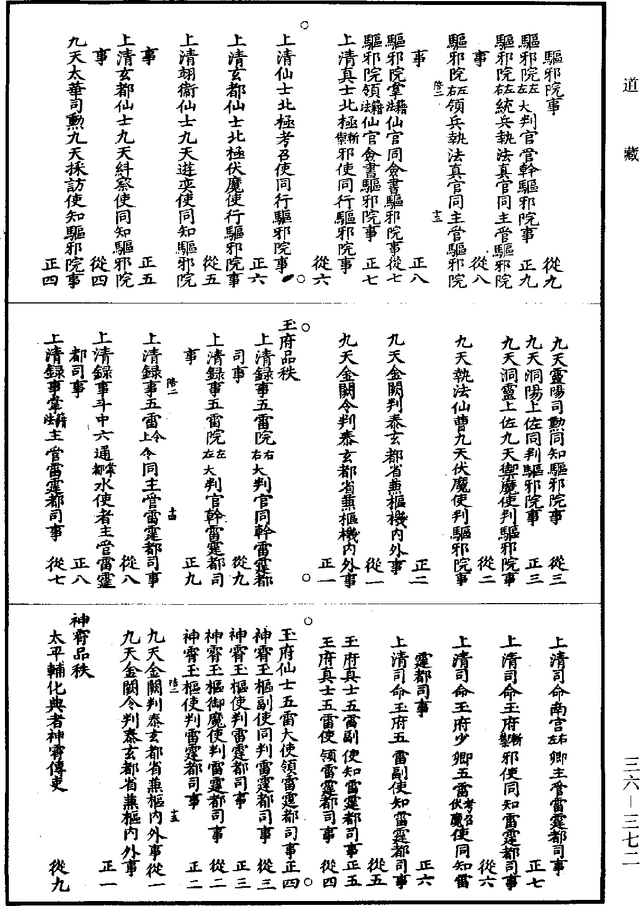 道藏
驅邪院事 從九
驅邪院左右大判官管幹驅邪院事 正九
驅邪院左右統兵執法真官同主管驅邪院
事 從八
驅邪院左右領兵執法真官同主管驅邪院
事 正八
驅邪院掌法籍仙官同僉書驅邪院事 從七
驅邪院領法籍仙官僉書驅邪院事 正七
上清真士北極斷邪使同行驅邪院事 從六
上清仙士北極考召使同行驅邪院事 正六
上清玄都仙士北極伏魔使行驅邪院事 從五
上清翊衛仙士九天遊奕使同知驅邪院
事 正五
上清玄都仙士九天糾察使同知驅邪院
事 從四
九天太華司勳九天採訪使知驅邪院事 正四
九天靈陽司勳同知驅邪院事 從三
九天洞陽上佐同判驅邪院事 正三
九天洞靈上佐九天禦魔使判驅邪院事 從二
九天執法仙曹九天伏魔使判驅邪院事 正二
九天金闕判泰玄都省兼樞機內外事 從一
九天金闕令判泰玄都省兼樞機內外事 正一
玉府品秩
上清錄事五雷院右大判官同幹雷霆都
司事 從九
上清錄事五雷院左大判官幹雷霆都司
事 正九
上清錄事五雷上令同主管雷霆都司事 從八
上清錄事斗中六通掌水使者主管雷霆
都司事 正八
上清錄事掌法籍主管雷霆都司事 從七
上清司命南宮右左卿主管雷霆都司事 正七
上清司命玉府斷邪使同知雷霆都司事 從六
上清司命玉府少卿五雷考召伏魔使同知雷
霆都司事 正六
上清司命玉府五雷副使知雷霆都司事 從五
玉府真士五雷副使知雷霆都司事 正五
玉府真士五雷使領雷霆都司事 從四
玉府仙士五雷大使領雷霆都司事 正四
神霄玉樞副使同判雷霆都司事 從三
神霄玉樞使判雷霆都司事 正三
神霄玉樞御魔使判雷霆都司事 從二
神霄玉樞使判雷霆都司事 正二
九天金闕判泰玄都省兼樞內外事 從一
九天金闕令判泰玄都省兼樞內外事 正一
神霄品秩
太平輔化典者神霄傳史 從九
三六—三七二